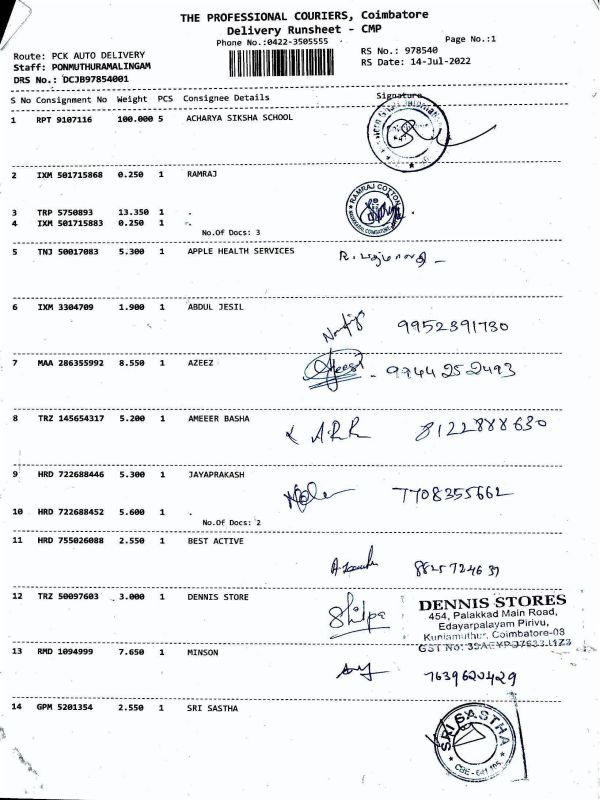 THE PROFESSIONAL COURIERS, Coimbatore
Delivery Runsheet - CMP
Phone No.:0422-3505555
Page No.:1
Route: PCK AUTO DELIVERY
RS No.: 978540
Staff: PONMUTHURAMALINGAM
RS Date: 14-Jul-2022
DRS No.: DCJB97854001
S No Consignment No Weight PCS Consignee Details Signature
1 RPT 9107116 100.000 5 ACHARYA SIKSHA SCHOOL
2 IXM 501715868 0.250 1 RAMRAJ
RAMRAJ COTTON
3 TRP 5750893 13.350 1 .
4 IXM 501715883 0.250 1 .
No.Of Docs: 3
5 TNJ 50017083 5.300 1 APPLE HEALTH SERVICES
6 IXM 3304709 1.900 1 ABDUL JESIL
9952391730
7 MAA 286355992 8.550 1 AZEEZ
9944252493
8 TRZ 145654317 5.200 1 AMEEER BASHA
8122888630
9 HRD 722688446 5.300 1 JAYAPRAKASH
7708355662
10 HRD 722688452 5.600 1 .
No.Of Docs: 2
11 HRD 755026088 2.550 1 BEST ACTIVE
12 TRZ 50097603 3.000 1 DENNIS STORE
Shilpa
DENNIS STORES
454, Palakkad Main Road,
Edayarpalayam Pirivu,
Kuniamuthur, Coimbatore-08
GST No:
13 RMD 1094999 7.650 1 MINSON
7639620429
14 GPM 5201354 2.550 1 SRI SASTHA
SRI SASTHA